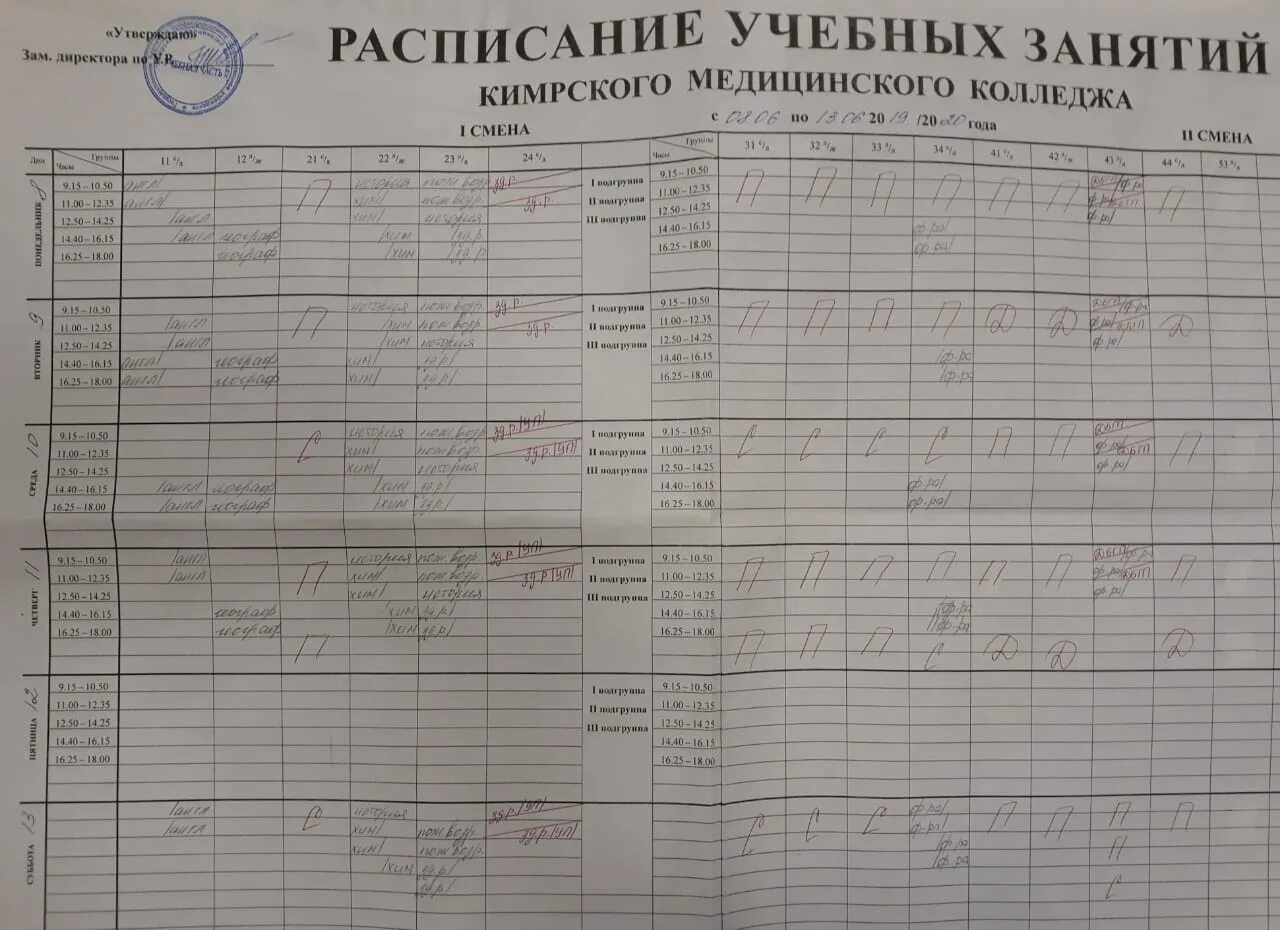 «Утверждаю»
Зам. директора по У.Р.
УЧЕБНАЯ ЧАСТЬ
РАСПИСАНИЕ УЧЕБНЫХ ЗАНЯТИЙ
КИМРСКОГО МЕДИЦИНСКОГО КОЛЛЕДЖА
с 08.06 по 13.06 2019/2020 года
I СМЕНА II СМЕНА
Дни Часы Группы 11 с/д 12 л/д 21 с/д 22 л/д 23 л/д 24 с/д Часы Группы 31 с/д 32 л/д 33 л/д 34 с/д 41 с/д 42 л/д 43 с/д 44 с/д 53 с/д
ПОНЕДЕЛЬНИК 8
9.15 – 10.50 англ/ П история пож.возр. зд.р. I подгруппа 9.15 – 10.50 П П П П П П ДБП/ф-ра П
11.00 – 12.35 англ/ хим/ пож.возр. зд.р. II подгруппа 11.00 – 12.35 ф-ра/ДБП
12.50 – 14.25 /англ хим/ история III подгруппа 12.50 – 14.25 ф-ра/
14.40 – 16.15 /англ географ /хим /зд.р. 14.40 – 16.15 ф-ра/
16.25 – 18.00 географ /хим /зд.р. 16.25 – 18.00 ф-ра/
ВТОРНИК 9
9.15 – 10.50 П история пож.возр. зд.р. I подгруппа 9.15 – 10.50 П П П П Д Д ДБП/ф-ра Д
11.00 – 12.35 /англ /хим пож.возр. зд.р. II подгруппа 11.00 – 12.35 ф-ра/ДБП
12.50 – 14.25 /англ /хим история III подгруппа 12.50 – 14.25 ф-ра/
14.40 – 16.15 англ/ географ хим/ зд.р/ 14.40 – 16.15 /ф-ра
16.25 – 18.00 англ/ географ хим/ зд.р/ 16.25 – 18.00 /ф-ра
СРЕДА 10
9.15 – 10.50 С история пож.возр. зд.р./УП/ I подгруппа 9.15 – 10.50 С С С С П П ДБП/ П
11.00 – 12.35 хим/ пож.возр. зд.р/УП/ II подгруппа 11.00 – 12.35 ф-ра/ДБП
12.50 – 14.25 хим/ история III подгруппа 12.50 – 14.25 ф-ра/
14.40 – 16.15 /англ географ /хим зд.р/ 14.40 – 16.15 ф-ра/
16.25 – 18.00 /англ географ /хим зд.р/ 16.25 – 18.00 ф-ра/
ЧЕТВЕРГ 11
9.15 – 10.50 /англ П история пож.возр. зд.р./УП/ I подгруппа 9.15 – 10.50 П П П П П П ДБП/ф-ра П
11.00 – 12.35 /англ хим/ пож.возр. зд.р/УП/ II подгруппа 11.00 – 12.35 ф-ра/ДБП
12.50 – 14.25 хим/ история III подгруппа 12.50 – 14.25 ф-ра/
14.40 – 16.15 географ /хим зд.р/ 14.40 – 16.15 /ф-ра
16.25 – 18.00 географ /хим зд.р/ 16.25 – 18.00 /ф-ра
П П П П С Д Д Д
ПЯТНИЦА 12
9.15 – 10.50 I подгруппа 9.15 – 10.50
11.00 – 12.35 II подгруппа 11.00 – 12.35
12.50 – 14.25 III подгруппа 12.50 – 14.25
14.40 – 16.15 14.40 – 16.15
16.25 – 18.00 16.25 – 18.00
СУББОТА 13
/англ С история зд.р./УП/ С С С ф-ра/ П П П П
/англ хим/ пож.возр. зд.р/УП/ ф-ра/
хим/ пож.возр. /ф-ра П
/хим зд.р/ /ф-ра
зд.р/ С